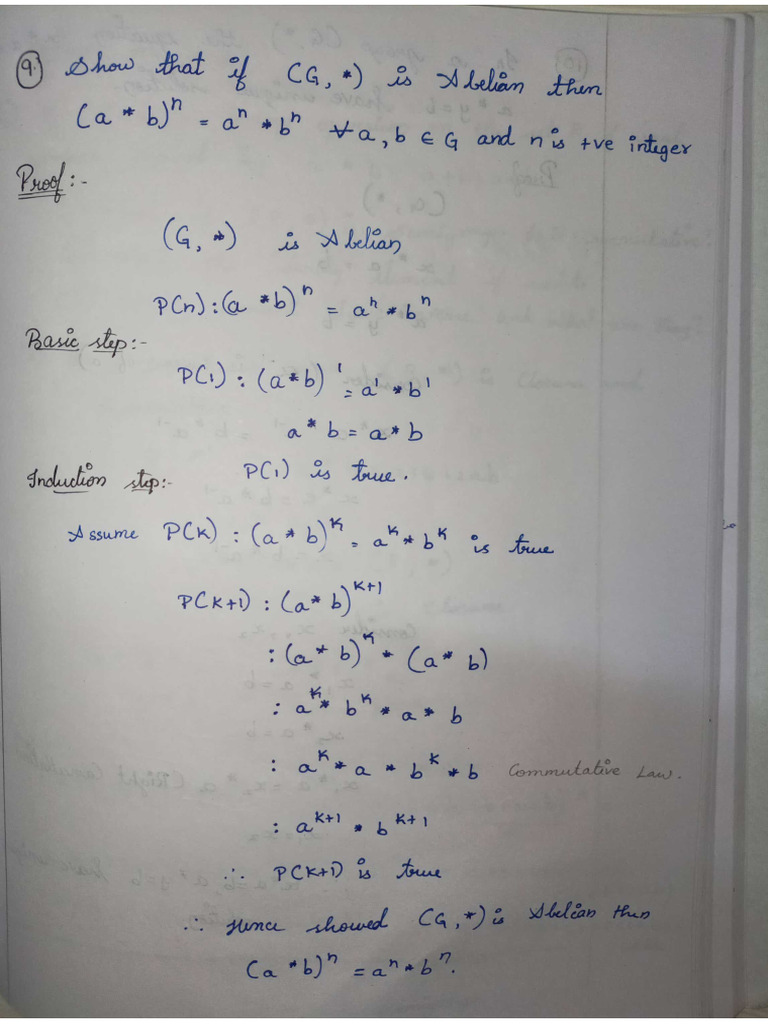 9. Show that if (G, *) is Abelian then
(a * b)ⁿ = aⁿ * bⁿ ∀ a, b ∈ G and n is +ve integer
Proof :-
(G, *) is Abelian
P(n) : (a * b)ⁿ = aⁿ * bⁿ
Basic step :-
P(1) : (a * b)¹ = a¹ * b¹
a * b = a * b
P(1) is true.
Induction step :-
Assume P(k) : (a * b)ᵏ = aᵏ * bᵏ is true
P(k+1) : (a * b)ᵏ⁺¹
: (a * b)ᵏ * (a * b)
: aᵏ * bᵏ * a * b
: aᵏ * a * bᵏ * b Commutative Law.
: aᵏ⁺¹ * bᵏ⁺¹
∴ P(k+1) is true
∴ Hence showed (G, *) is Abelian then
(a * b)ⁿ = aⁿ * bⁿ.